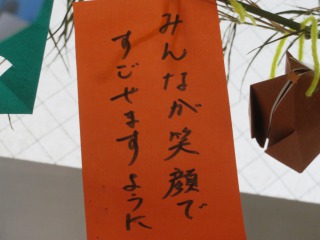 みんなが笑顔で
すごせますように